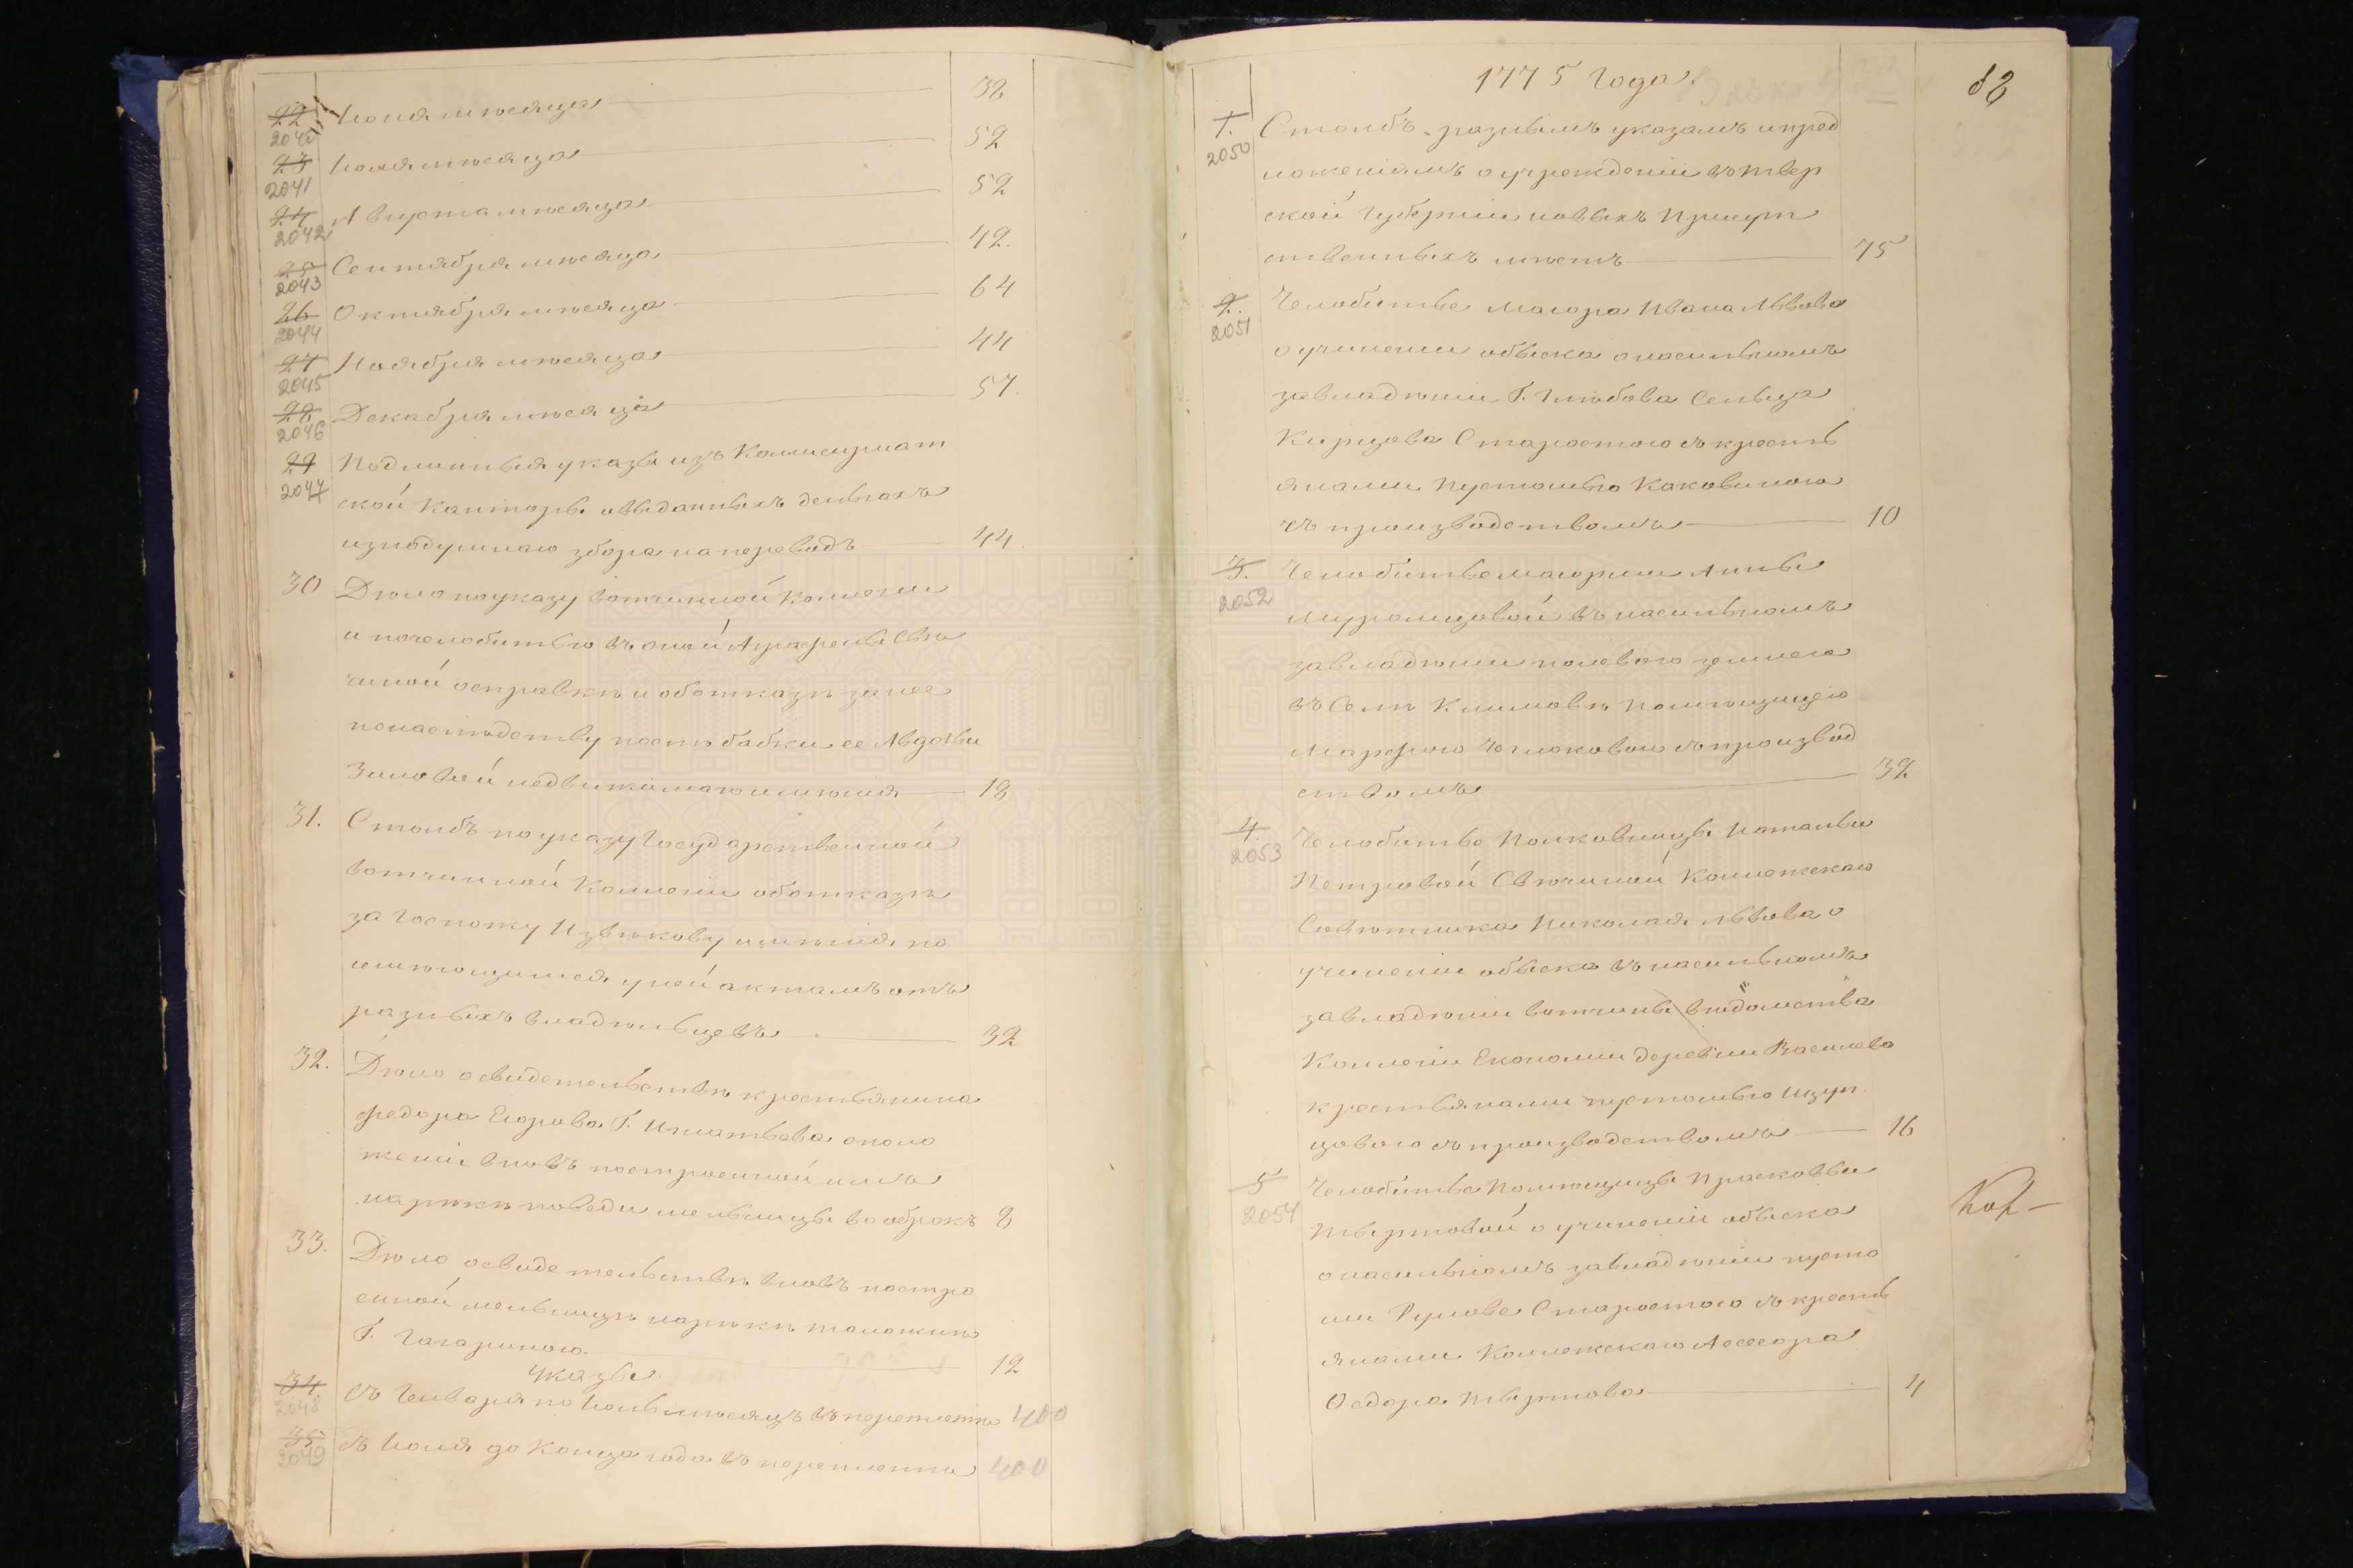 22 Июня месяца 38
2040
23 Июля месяца 52
2041
24 Августа месяца 52
2042
25 Сентября месяца 42.
2043
26 Октября месяца 64
2044
27 Ноября месяца 44
2045
28 Декабря месяца 57.
2046
29 Подлинныя указы изъ Комисариат
2047
ской Канторы овыданныхъ деньгахъ
изподушнаго збора на переводъ 44.
30 Дѣло поуказу вотчинной Коллегии
и почелобитью въ оной Аграфены Свѣ
чиной осправкѣ и обѣ отказѣ занее
понаслѣдству послѣ бабки ее Авдотьи
недвижимаго имѣния 18
31. Столбъ по указу Государственной
вотчинной Коллегіи оботказѣ
за Госпожу Извѣкову имѣния по
имѣющимся уней актамъ отъ
разныхъ владѣльцевъ 32
32. Дѣло освидетельствѣ крестьянина
Федора Егорова Г. Игнатьева ополо
женіи вновь построенной имъ
нарѣкѣ поведи мельницы во оброкъ 8
33. Дѣло освидетельствѣ вновь постро
енной мельницѣ нарѣкѣ
Г. Гагариною. 12
Указы.
34 съ Генваря по Июль месяцъ въ переплетѣ 400
2048
35 съ Июля до Конца года въ переплетѣ 400
2049
1775 Года. 88
1. Столбъ разнымъ указамъ ипред
2050
ложениямъ о учреждении въ твер
ской Губерніи новыхъ Присут
ственныхъ мѣстъ 75
2. Челобитье Маиора Ивана Львова
2051
о учинении обыска онасильномъ
завладѣнии Г. Глѣбова Сельца
Старостою съ кресть
янами пустошью
съ производствомъ 10
3. Челобитье маиорши Анны
2052
Муромцовой въ насильномъ
завладѣнии полевою землею
въ Селѣ Климовѣ помѣщицею
Марфою съ производ
ствомъ 32
4. Челобитье Полковницы Натальи
2053
Петровой Свѣчиной Коллежскаго
Совѣтника Николая Львова о
учинении обыска въ насильномъ
завладѣнии вотчины вѣдомства
Коллегіи Економии деревни Василева
крестьянами пустошью
съ производствомъ 16
5 Челобитье Помѣщицы Прасковьи
2054
Тыртовой о учинении обыска
онасильномъ завладѣнии пусто
ши Старостою съ кресть
янами Коллежскаго Ассесора
Федора Тыртова 4